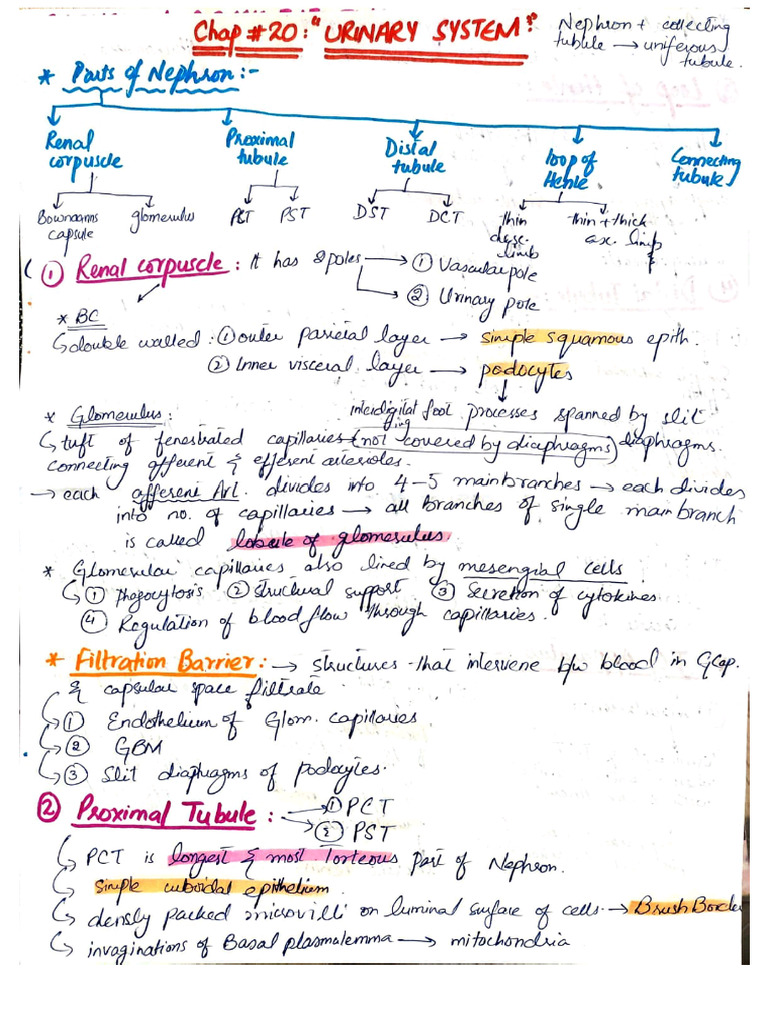 Chap # 20: "URINARY SYSTEM"
Nephron + collecting
tubule → uniferous
tubule.
* Parts of Nephron:-
Renal corpuscle
Proximal tubule
Distal tubule
loop of Henle
Connecting tubule
Bowmanns capsule
glomerulus
PCT
PST
DST
DCT
thin desc. limb
thin + thick as. limb
① Renal corpuscle: It has 2 poles → ① Vascular pole
→ ② Urinary pole
* BC
↳ double walled: ① outer parietal layer → simple squamous epith.
② Inner visceral layer → podocytes
↓
* Glomerulus: interdigitating foot processes spanned by slit
diaphragms.
↳ tuft of fenestrated capillaries (not covered by diaphragms)
connecting afferent & efferent arterioles.
→ each afferent Art. divides into 4-5 main branches → each divides
into no. of capillaries → all branches of single main branch
is called lobule of glomerulus.
* Glomerular capillaries also lined by mesengial cells
↳ ① Phagocytosis ② Structural support ③ Secretion of cytokines
④ Regulation of blood flow through capillaries.
* Filtration Barrier: → structures that intervene b/w blood in G cap.
& capsular space filtrate
① Endothelium of Glom. capillaries
② GBM
③ Slit diaphragms of podocytes.
② Proximal Tubule: → ① PCT
→ ② PST
↳ PCT is longest & most torteous part of Nephron.
↳ simple cuboidal epithelium.
↳ densly packed microvilli on luminal surface of cells → Brush Borde
↳ invaginations of Basal plasmalemma → mitochondria